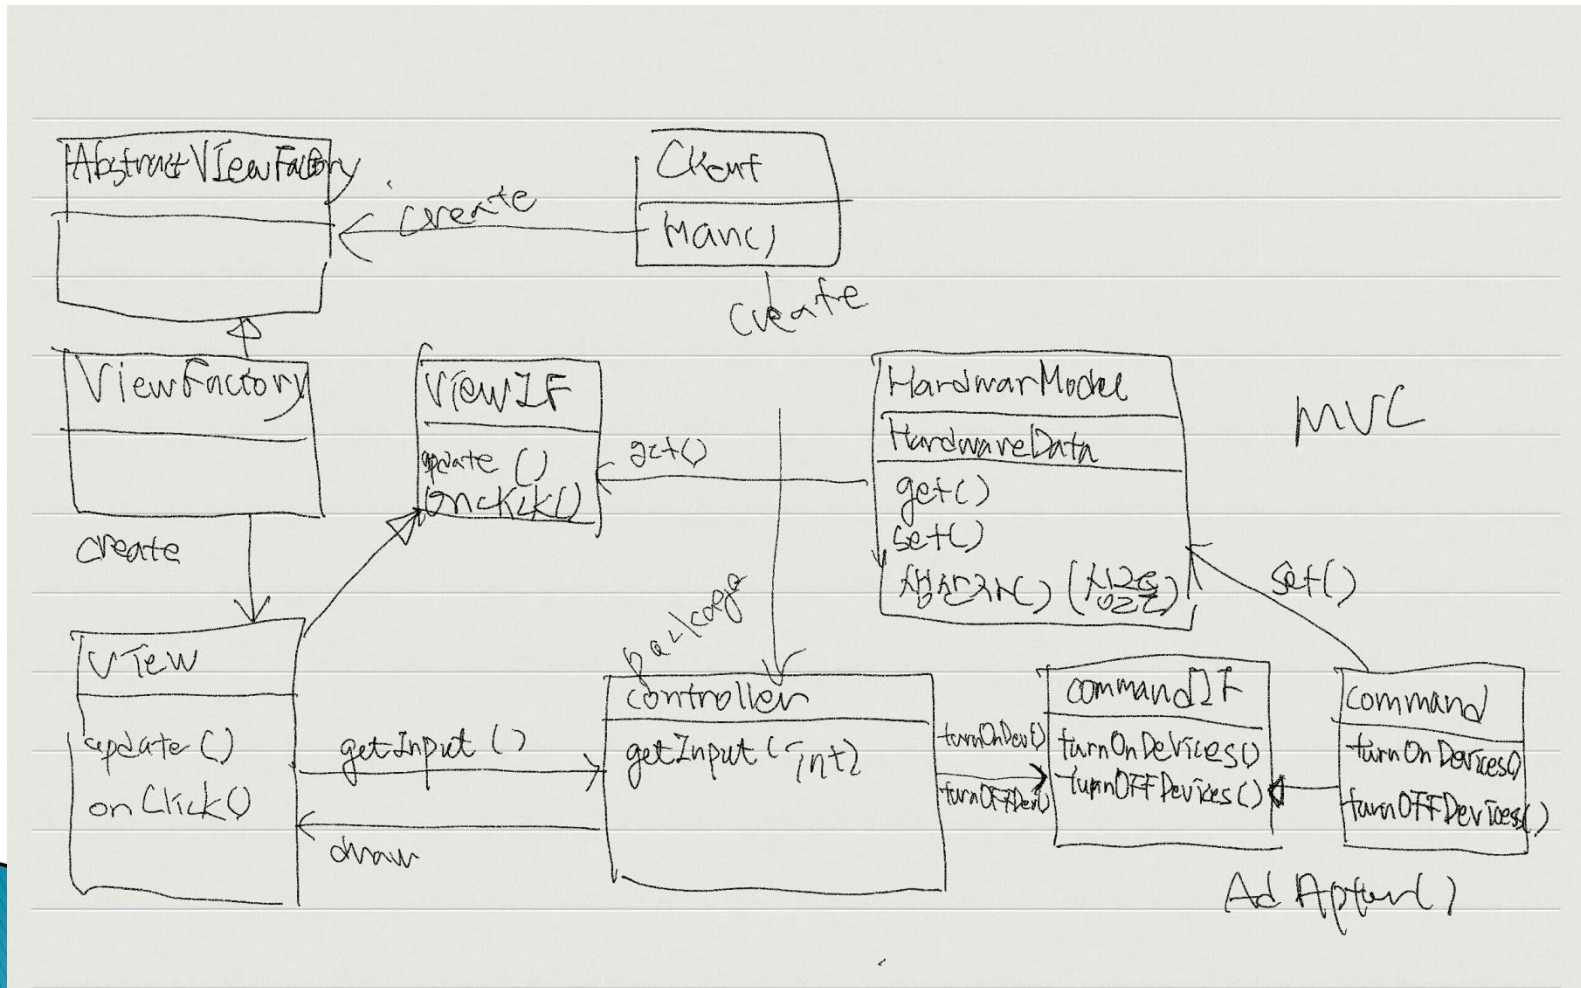 AbstractViewFactory
Client
Main()
create
create
ViewFactory
ViewIF
update ()
onclick()
get()
HardwarModel
HardwareData
get()
set()
MVC
create
set()
package
View
update ()
onClick()
getInput ()
draw
controller
getInput (int)
turnOnDev()
turnOFFDev()
commandIF
turnOnDevices()
turnOFFDevices()
command
turnOnDevices()
turnOFFDevices()
AdApter()